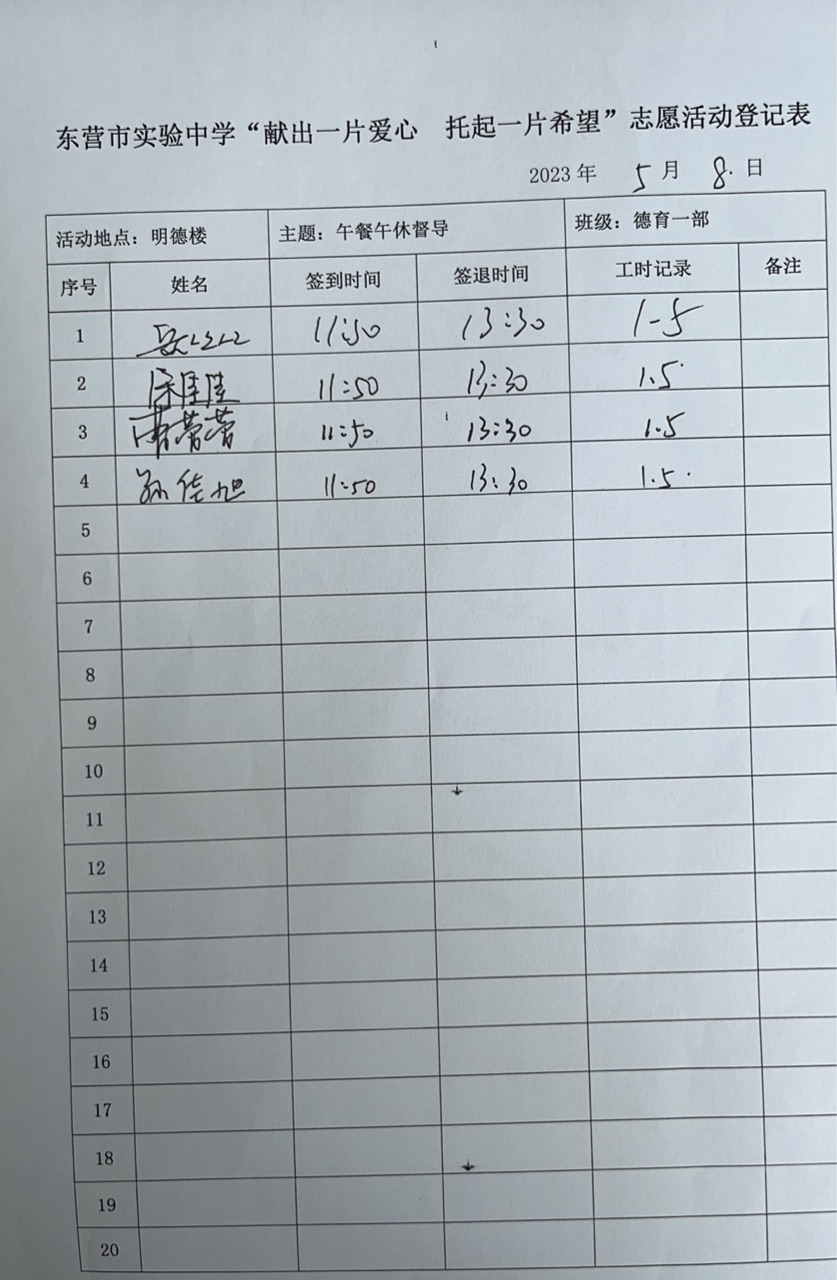 东营市实验中学“献出一片爱心 托起一片希望”志愿活动登记表
2023 年 5 月 8 日
活动地点：明德楼 主题：午餐午休督导 班级：德育一部
序号 姓名 签到时间 签退时间 工时记录 备注
1 11:50 13:30 1-5
2 宋佳佳 11:50 13:30 1.5
3 曹蕾蕾 11:50 13:30 1.5
4 孙佳旭 11:50 13:30 1.5
5
6
7
8
9
10
11
12
13
14
15
16
17
18
19
20